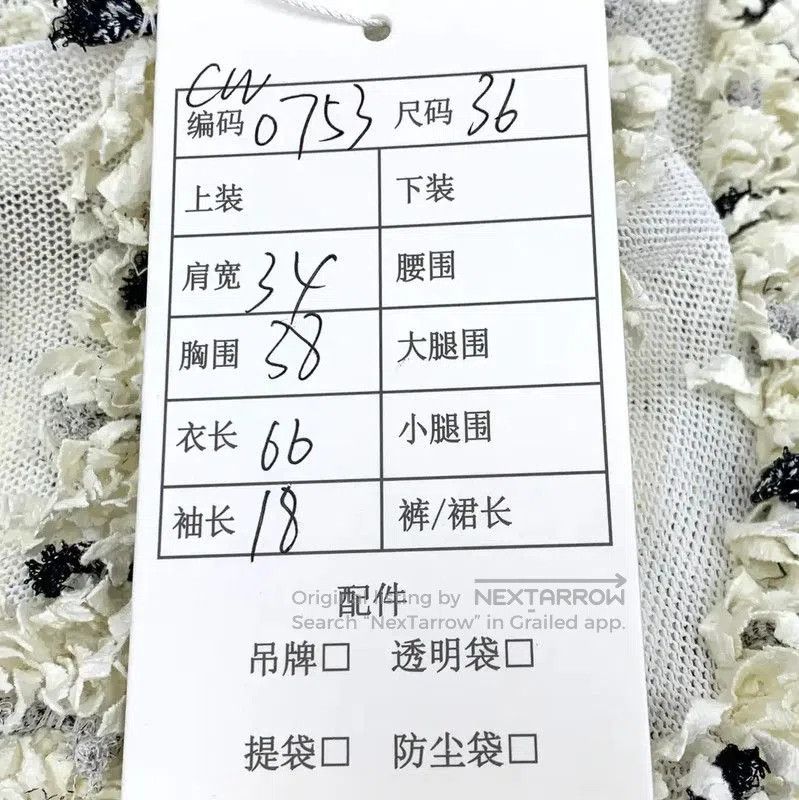 CW
编码 0753 尺码 36
上装 下装
肩宽 34 腰围
胸围 38 大腿围
衣长 66 小腿围
袖长 18 裤/裙长
配件
Original listing by NEXTARROW
Search “NexTarrow” in Grailed app.
吊牌□ 透明袋□
提袋□ 防尘袋□